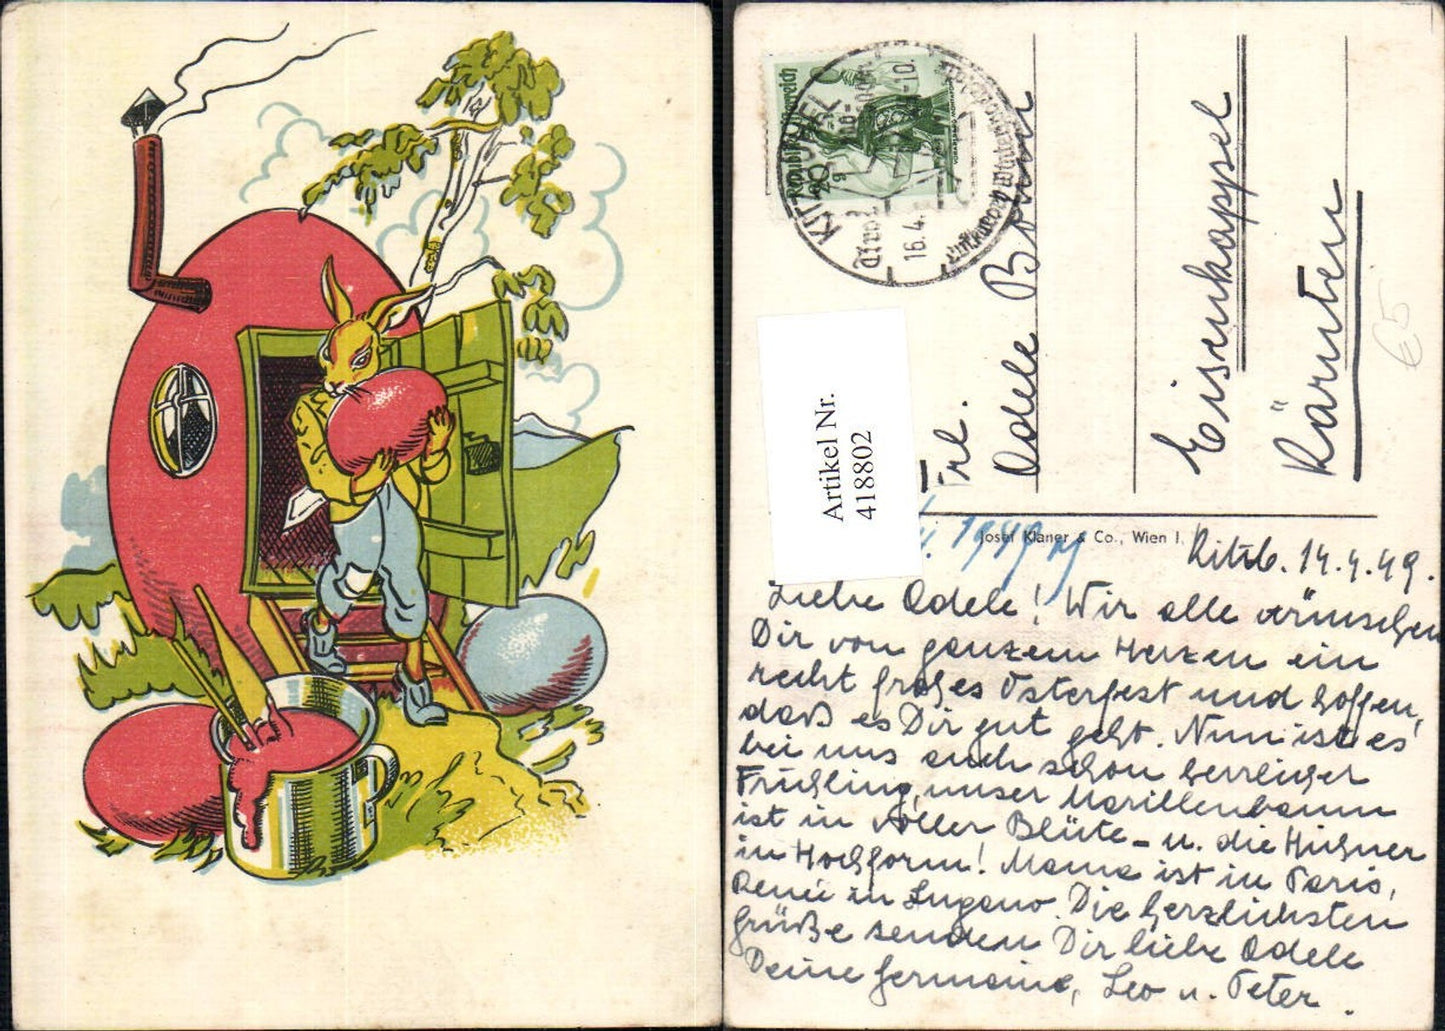 Republik Österreich
20 g
KITZBÜHEL
Tirol
16.4.
Artikel Nr.
418802
€5
Frl.
Adele Böhm
Eisenkappel
Kärnten
1949
Josef Klaner & Co., Wien I.
Kitzb. 14.4.49.
Liebe Adele! Wir alle wünschen
Dir von ganzem Herzen ein
recht frohes Osterfest und hoffen,
daß es Dir gut geht. Nun ist es
bei uns auch schon herrlicher
Frühling, unser Marillenbaum
ist in voller Blüte – u. die Hühner
in Hochform! Mama ist in Paris,
René in Lugano. Die herzlichsten
Grüße senden Dir liebe Adele
Deine Germaine, Leo u. Peter.